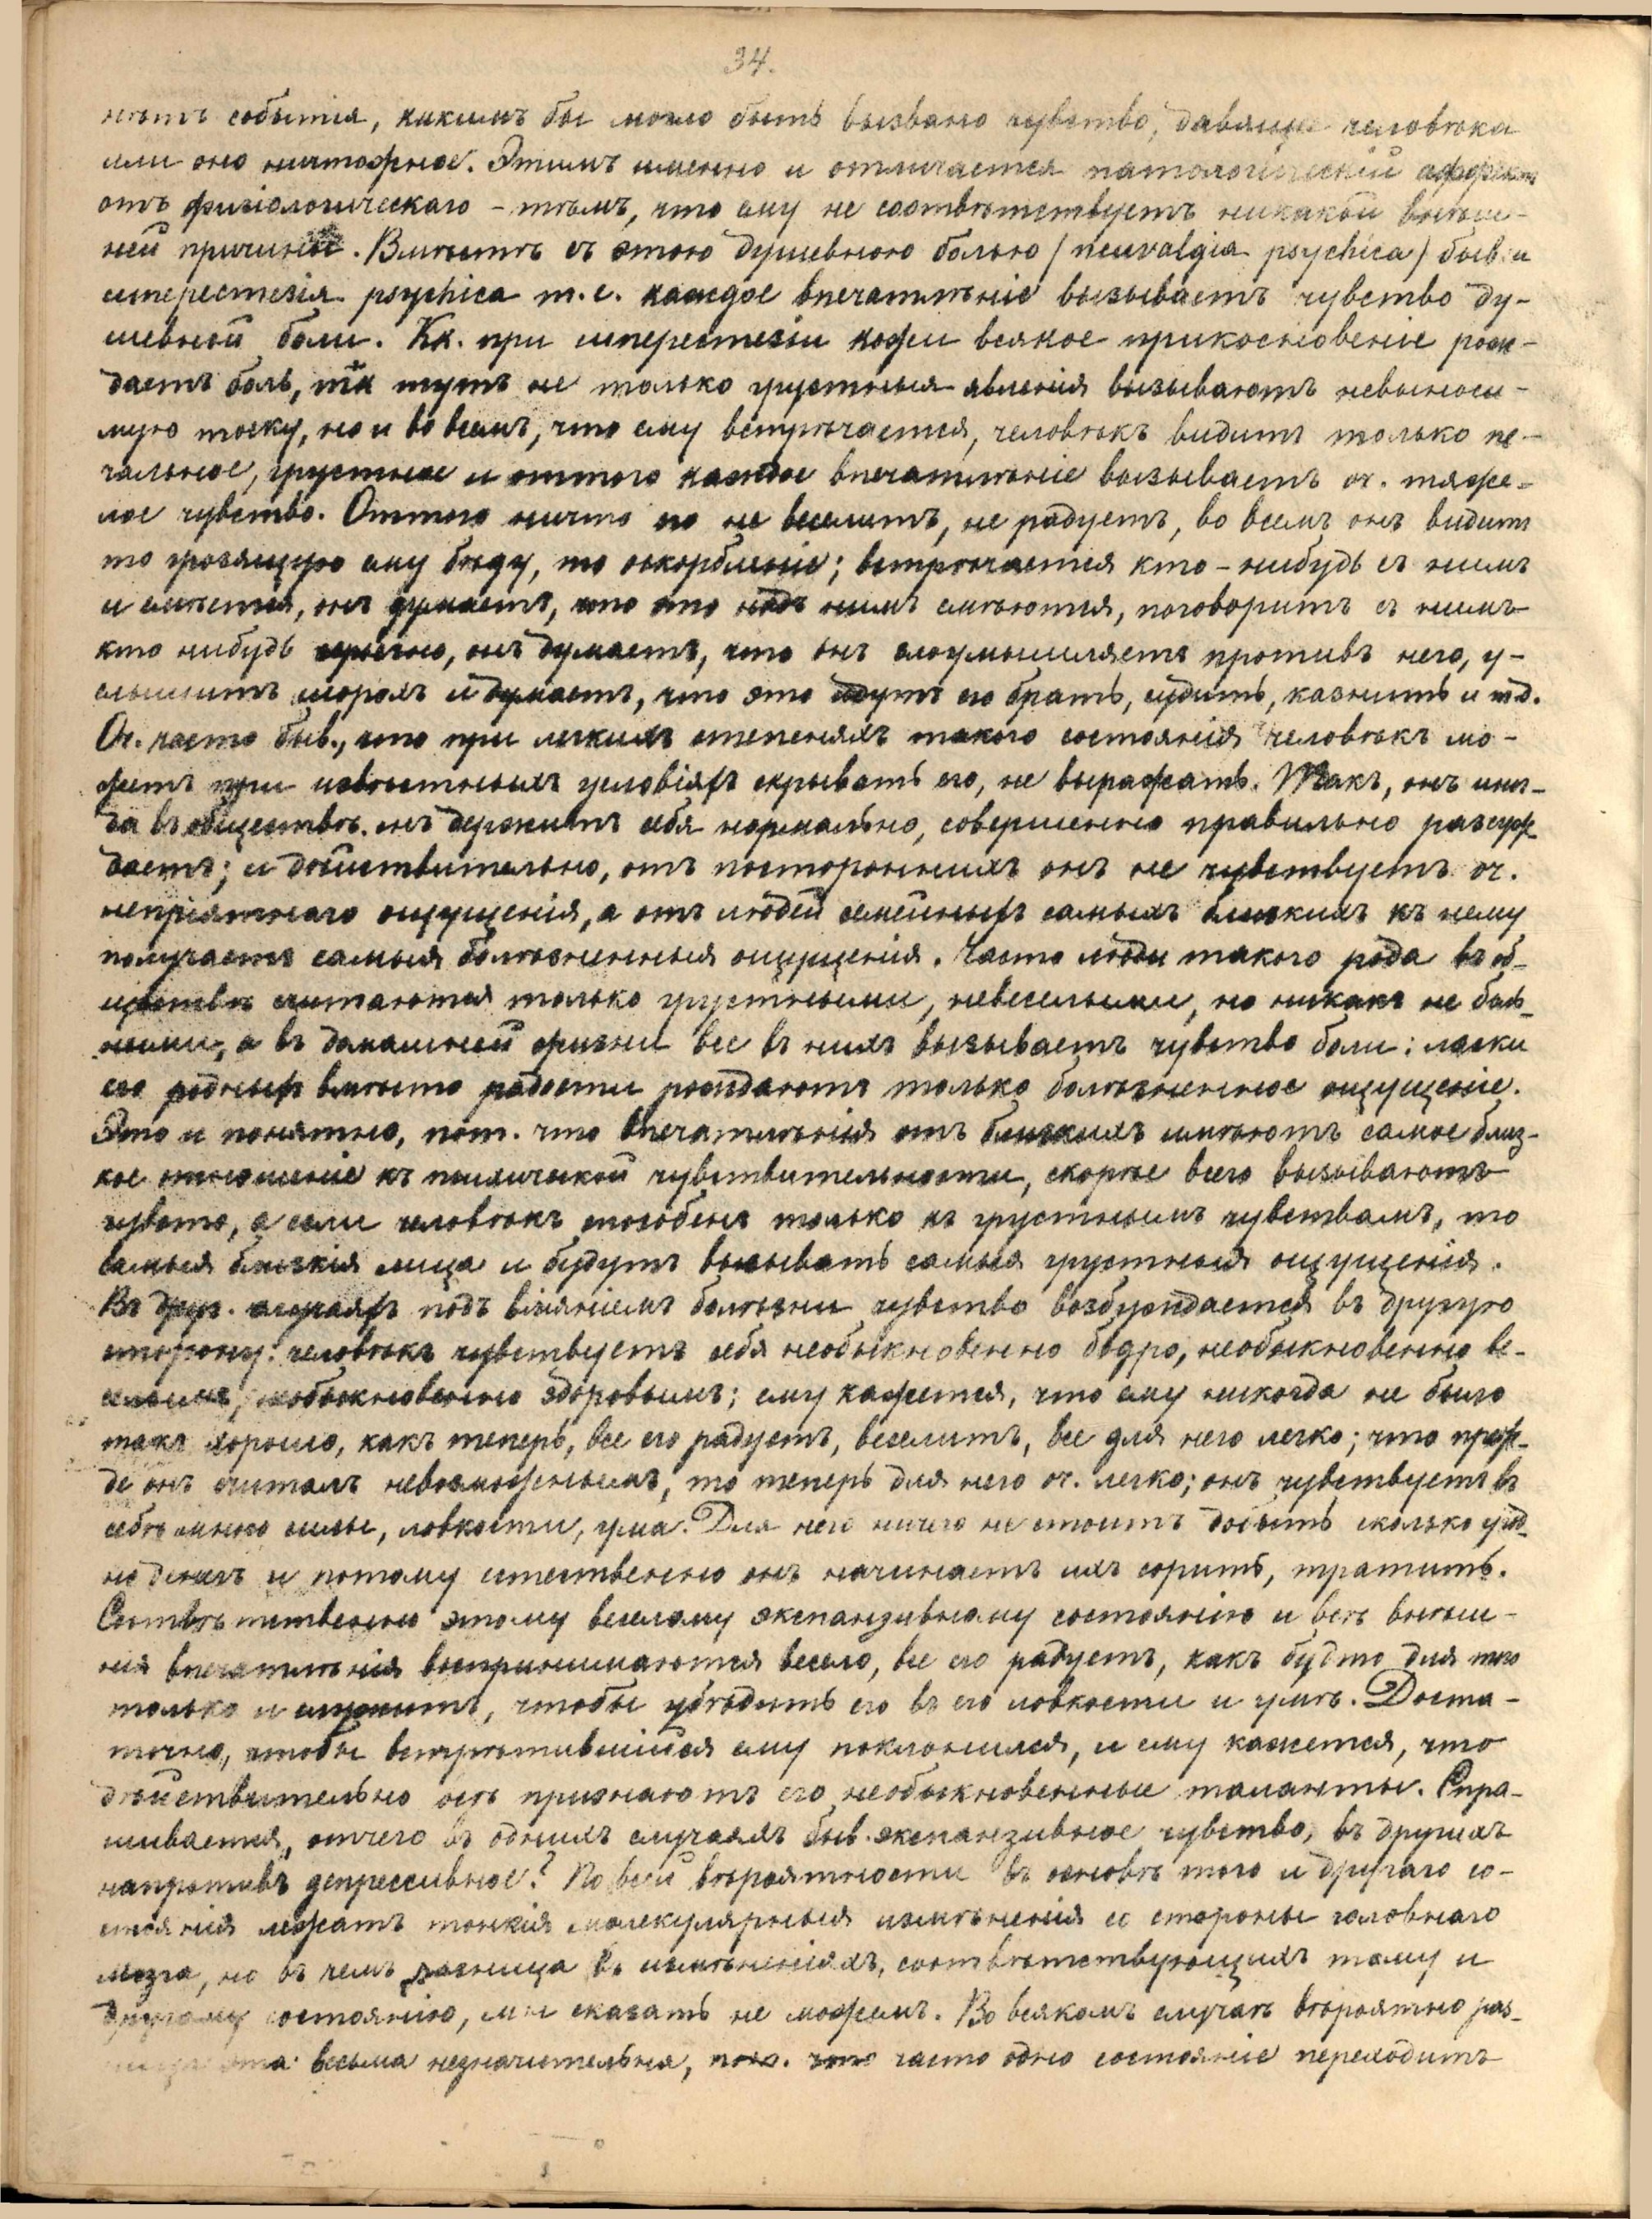 34.
нѣтъ событія, какимъ бы могло быть вызвано чувство, давящее человѣка
или оно ничтожное. Этимъ именно и отличается патологическій аффектъ
отъ физіологическаго - тѣмъ, что ему не соотвѣтствуетъ никакой внѣш-
ней причины. Вмѣстѣ съ этою душевною болью (neuralgia psychica) быв. и
иперестезія psychica т.е. каждое впечатлѣніе вызываетъ чувство ду-
шевной боли. Кк. при иперестезіи кожи всякое прикосновеніе рож-
даетъ боль, тк тутъ не только грустныя явленія вызываютъ невыноси-
мую тоску, но и во всемъ, что ему встрѣчается, человѣкъ видитъ только пе-
чальное, грустное и оттого каждое впечатлѣніе вызываетъ оч. тяже-
лое чувство. Оттого ничто его не веселитъ, не радуетъ, во всемъ онъ видитъ
то грозящую ему бѣду, то оскорбленіе; встрѣчается кто-нибудь съ нимъ
и смѣется, онъ думаетъ, что это надъ нимъ смѣются, поговоритъ съ нимъ
кто нибудь серьезно, онъ думаетъ, что онъ злоумышляетъ противъ него, у-
слышитъ шорохъ и думаетъ, что это идутъ его брать, судить, казнить и т.д.
Оч. часто быв., что при легкихъ степеняхъ такого состоянія человѣкъ мо-
жетъ при извѣстныхъ условіяхъ скрывать его, не выражать. Такъ, онъ иног-
да въ обществѣ онъ держитъ себя нормально, совершенно правильно разсуж-
даетъ; и дѣйствительно, отъ постороннихъ онъ не чувствуетъ оч.
непріятнаго ощущенія, а отъ людей семейныхъ самыхъ близкихъ къ нему
получаетъ самыя болѣзненныя ощущенія. Часто люди такого рода въ об-
ществѣ считаются только грустными, невеселыми, но никакъ не боль-
ными, а въ домашней жизни все въ нихъ вызываетъ чувство боли: ласки
его родныхъ вмѣсто радости рождаютъ только болѣзненное ощущеніе.
Это и понятно, пот. что впечатлѣнія отъ близкихъ имѣютъ самое близ-
кое отношеніе къ психической чувствительности, скорѣе всего вызываютъ
чувство, а если человѣкъ способенъ только къ грустнымъ чувствамъ, то
самыя близкія лица и будутъ вызывать самыя грустныя ощущенія.
Въ друг. случаяхъ подъ вліяніемъ болѣзни чувство возбуждается въ другую
сторону: человѣкъ чувствуетъ себя необыкновенно бодро, необыкновенно ве-
селымъ, необыкновенно здоровымъ; ему кажется, что ему никогда не было
такъ хорошо, какъ теперь, все его радуетъ, веселитъ, все для него легко; что преж-
де онъ считалъ невозможнымъ, то теперь для него оч. легко; онъ чувствуетъ въ
себѣ много силы, ловкости, ума. Для него ничего не стоитъ добыть сколько угод-
но денегъ и потому естественно онъ начинаетъ ихъ сорить, тратить.
Соотвѣтственно этому веселому экспанзивному состоянію и всѣ внѣш-
нія впечатлѣнія воспринимаются весело, все его радуетъ, какъ будто для того
только и служитъ, чтобы убѣдить его въ его ловкости и умѣ. Доста-
точно, чтобы встрѣтившійся ему поклонился, и ему кажется, что
дѣйствительно всѣ признаютъ его необыкновенные таланты. Спра-
шивается, отчего въ однихъ случаяхъ быв. экспанзивное чувство, въ другихъ
напротивъ депрессивное? По всей вѣроятности въ основѣ того и другаго со-
стоянія лежатъ тонкія молекулярныя измѣненія со стороны головнаго
мозга, но въ чемъ разница въ измѣненіяхъ, соотвѣтствующихъ тому и
другому состоянію, мы сказать не можемъ. Во всякомъ случаѣ вѣроятно раз-
ница эта весьма незначительна, пот. что часто одно состояніе переходитъ